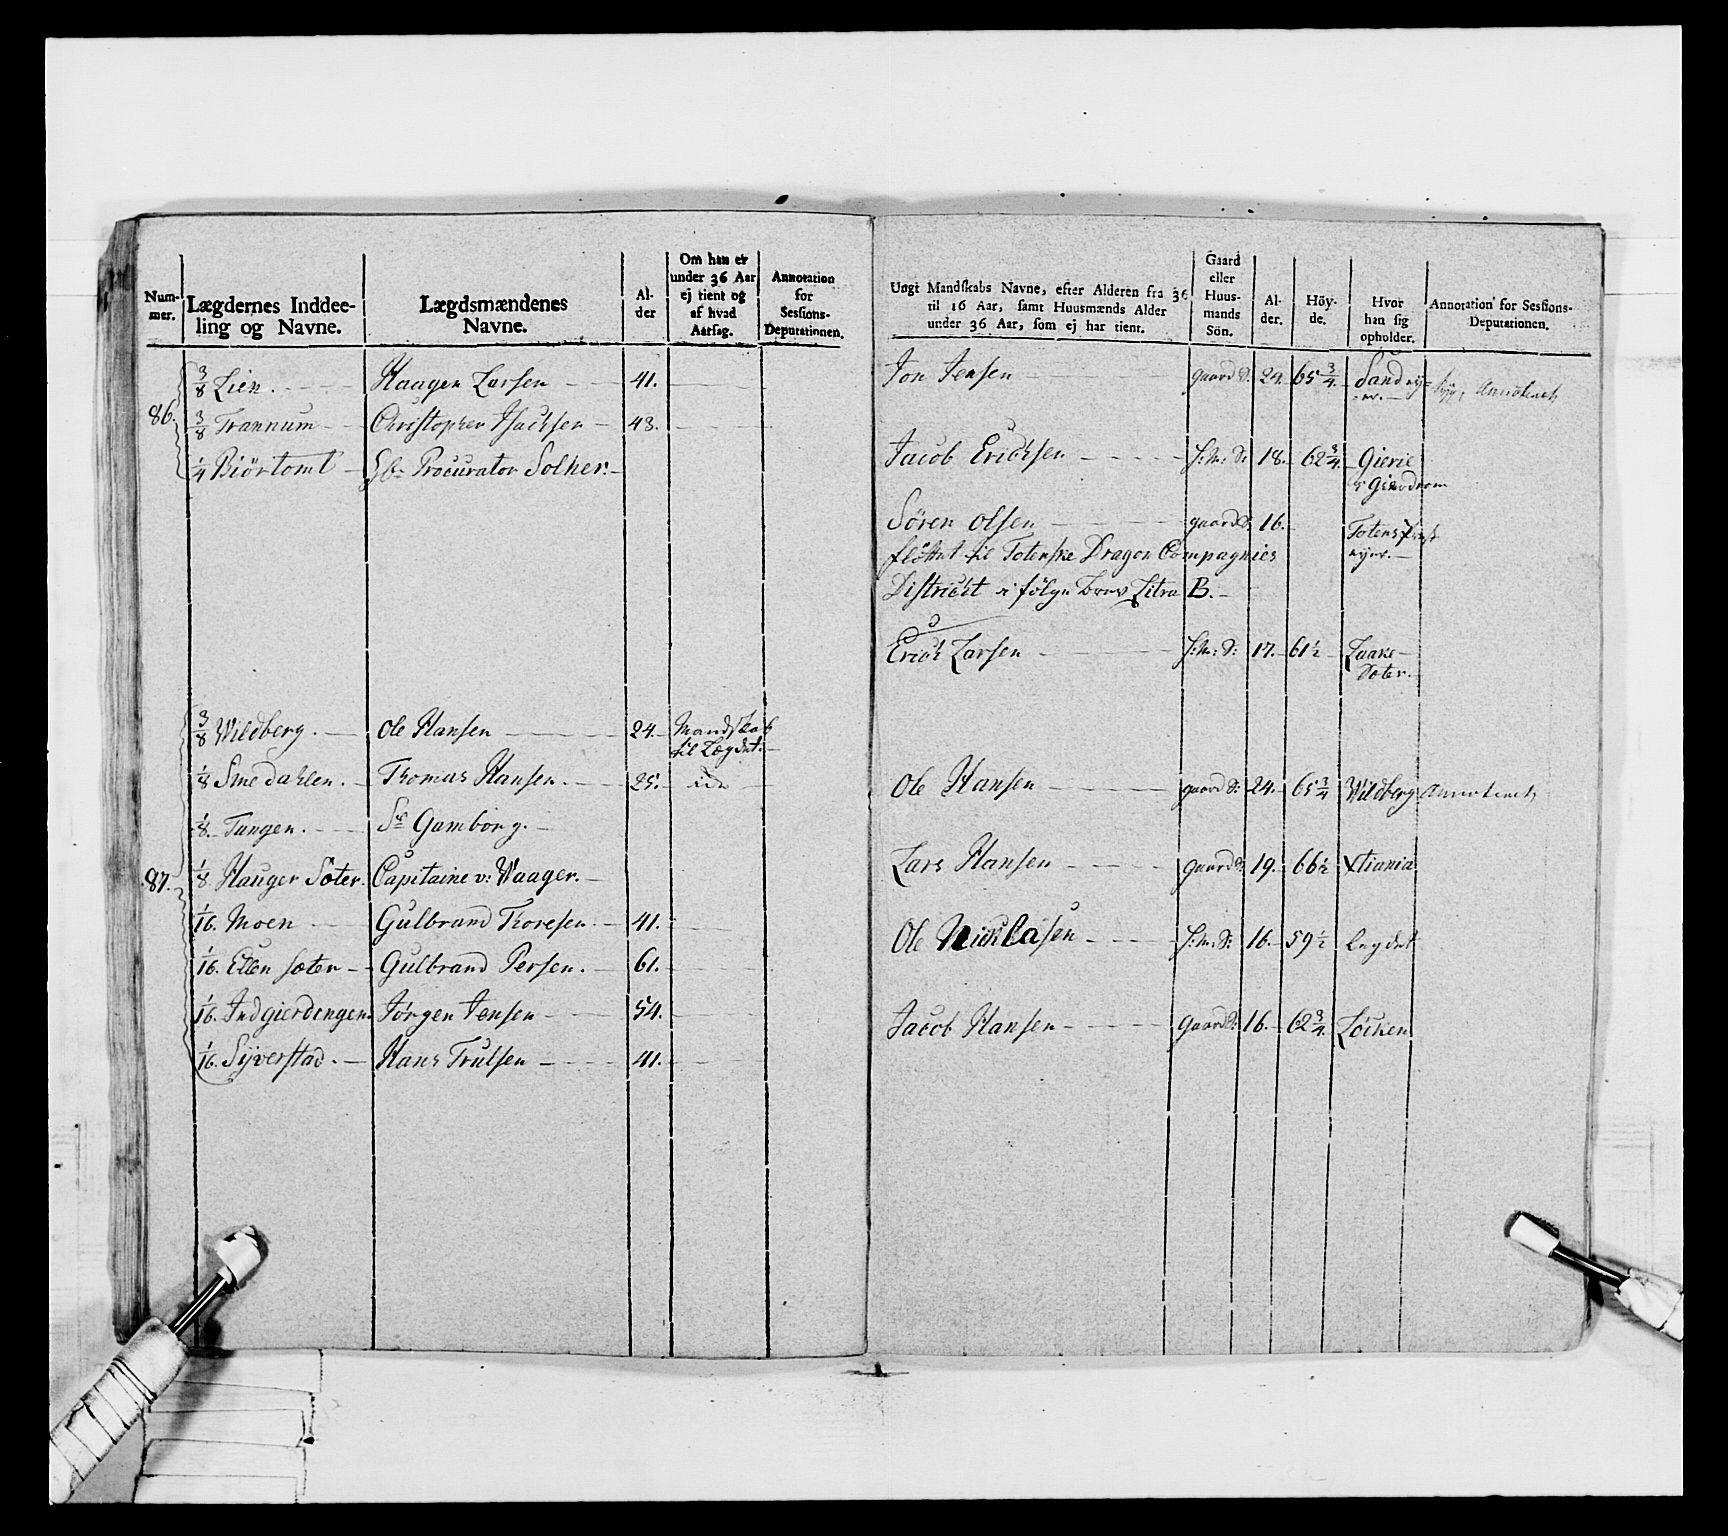 Num-
mer.
Lægdernes Inddee-
ling og Navne.
Lægdsmændenes
Navne.
Al-
der
Om han er
under 36 Aar
ej tient og
af hvad
Aarsag.
Annotation
for
Sessions-
Deputationen.
86.
3/8 Lien. Haagen Larsen 41.
3/8 Trannum Christopher Isachsen 43.
1/4 Biörtomt Procurator Solher.
87.
3/8 Wildberg. Ole Hansen 24. Mandskab
til Lægdet.
1/8 Smedahlen. Thomas Hansen. 25.
1/8 Tangen. Sr Gamborg.
1/8 Hauger Sæter. Capitaine v: Waager.
1/16. Moen Gulbrand Thoresen. 41.
1/16. Ellen sæter Gulbrand Persen. 61.
1/16. Indgierdengen Jörgen Jensen 54.
1/16. Syverstad. Hans Trulsen 41.
Ungt Mandskabs Navne, efter Alderen fra 36
til 16 Aar, samt Huusmænds Alder
under 36 Aar, som ej har tient.
Gaard
eller
Huus-
mands
Sön.
Al-
der.
Höy-
de.
Hvor
han sig
opholder.
Annotation for Sessions-
Deputationen.
Jon Jensen gaard S. 24. 65 3/4.
Jacob Erichsen H:M: S: 18. 62 3/4. Gierie
Sören Olsen gaard S. 16.
flöttet til Totenske Dragon Compagnies
District i fölge Brev Litra B.
Erich Larsen H:M: S: 17. 61 1/2
Ole Hansen gaard S: 24. 65 3/4 Wildberg
Lars Hansen gaard S: 19. 66 1/2 Xtiania
Ole Nicklasen H:M: S: 16. 59 1/2 legdet
Jacob Hansen gaard S: 16. 62 3/4. Löcken